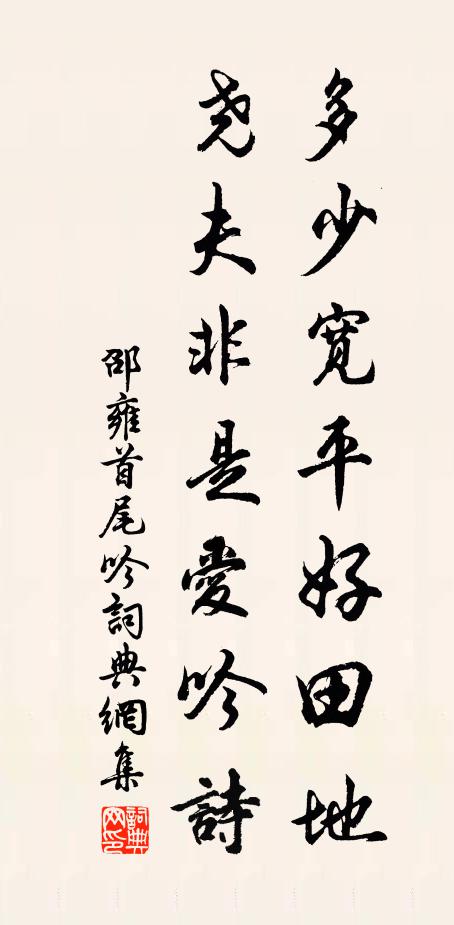 多少寬平好田地
尧夫非是愛吟詩
邵雍首尾吟詞典網集
詞典网印